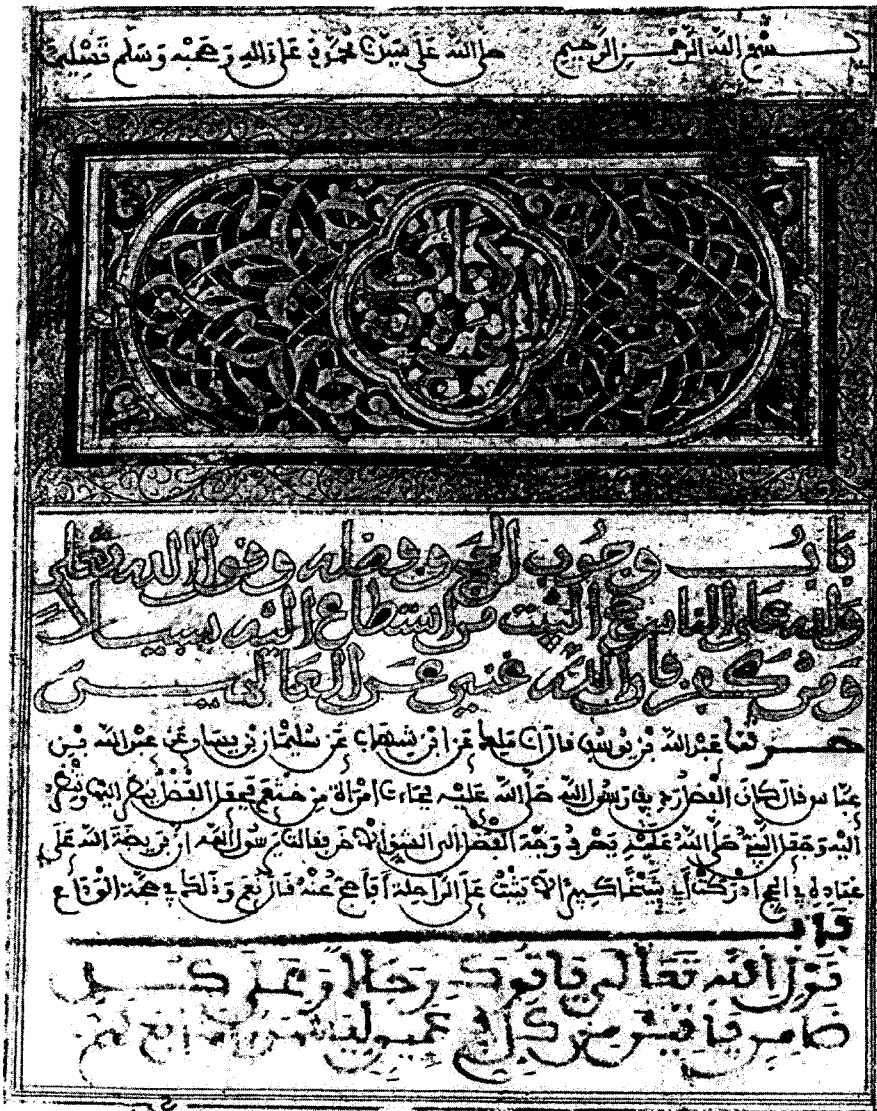 بسم الله الرحمن الرحيم صلى الله على سيدنا محمد وعلى ءاله وصحبه وسلم تسليما
كتاب
باب وجوب الحج وفضله وقول الله تعلى
ولله على الناس حج البيت من استطاع اليه سبيلا
ومن كفر فإن الله غني عن العالمين
حدثنا عبد الله بن يوسف قال انا ملك عن ابن شهاب عن سليمان بن يسار عن عبد الله بن
عباس قال كان الفضل رديف رسول الله صلى الله عليه فجاءت امرأة من خثعم فجعل الفضل ينظر اليها وتنظر
اليه وجعل النبي صلى الله عليه يصرف وجه الفضل الى الشق الاخر فقالت يرسول الله ان فريضة الله على
عباده في الحج ادركت ابي شيخا كبيرا لا يثبت على الراحلة أفأحج عنه قال نعم وذلك في حجة الوداع
باب
قول الله تعالى ياتوك رجالا وعلى كل
ضامر ياتين من كل فج عميق ليشهدوا منافع لهم